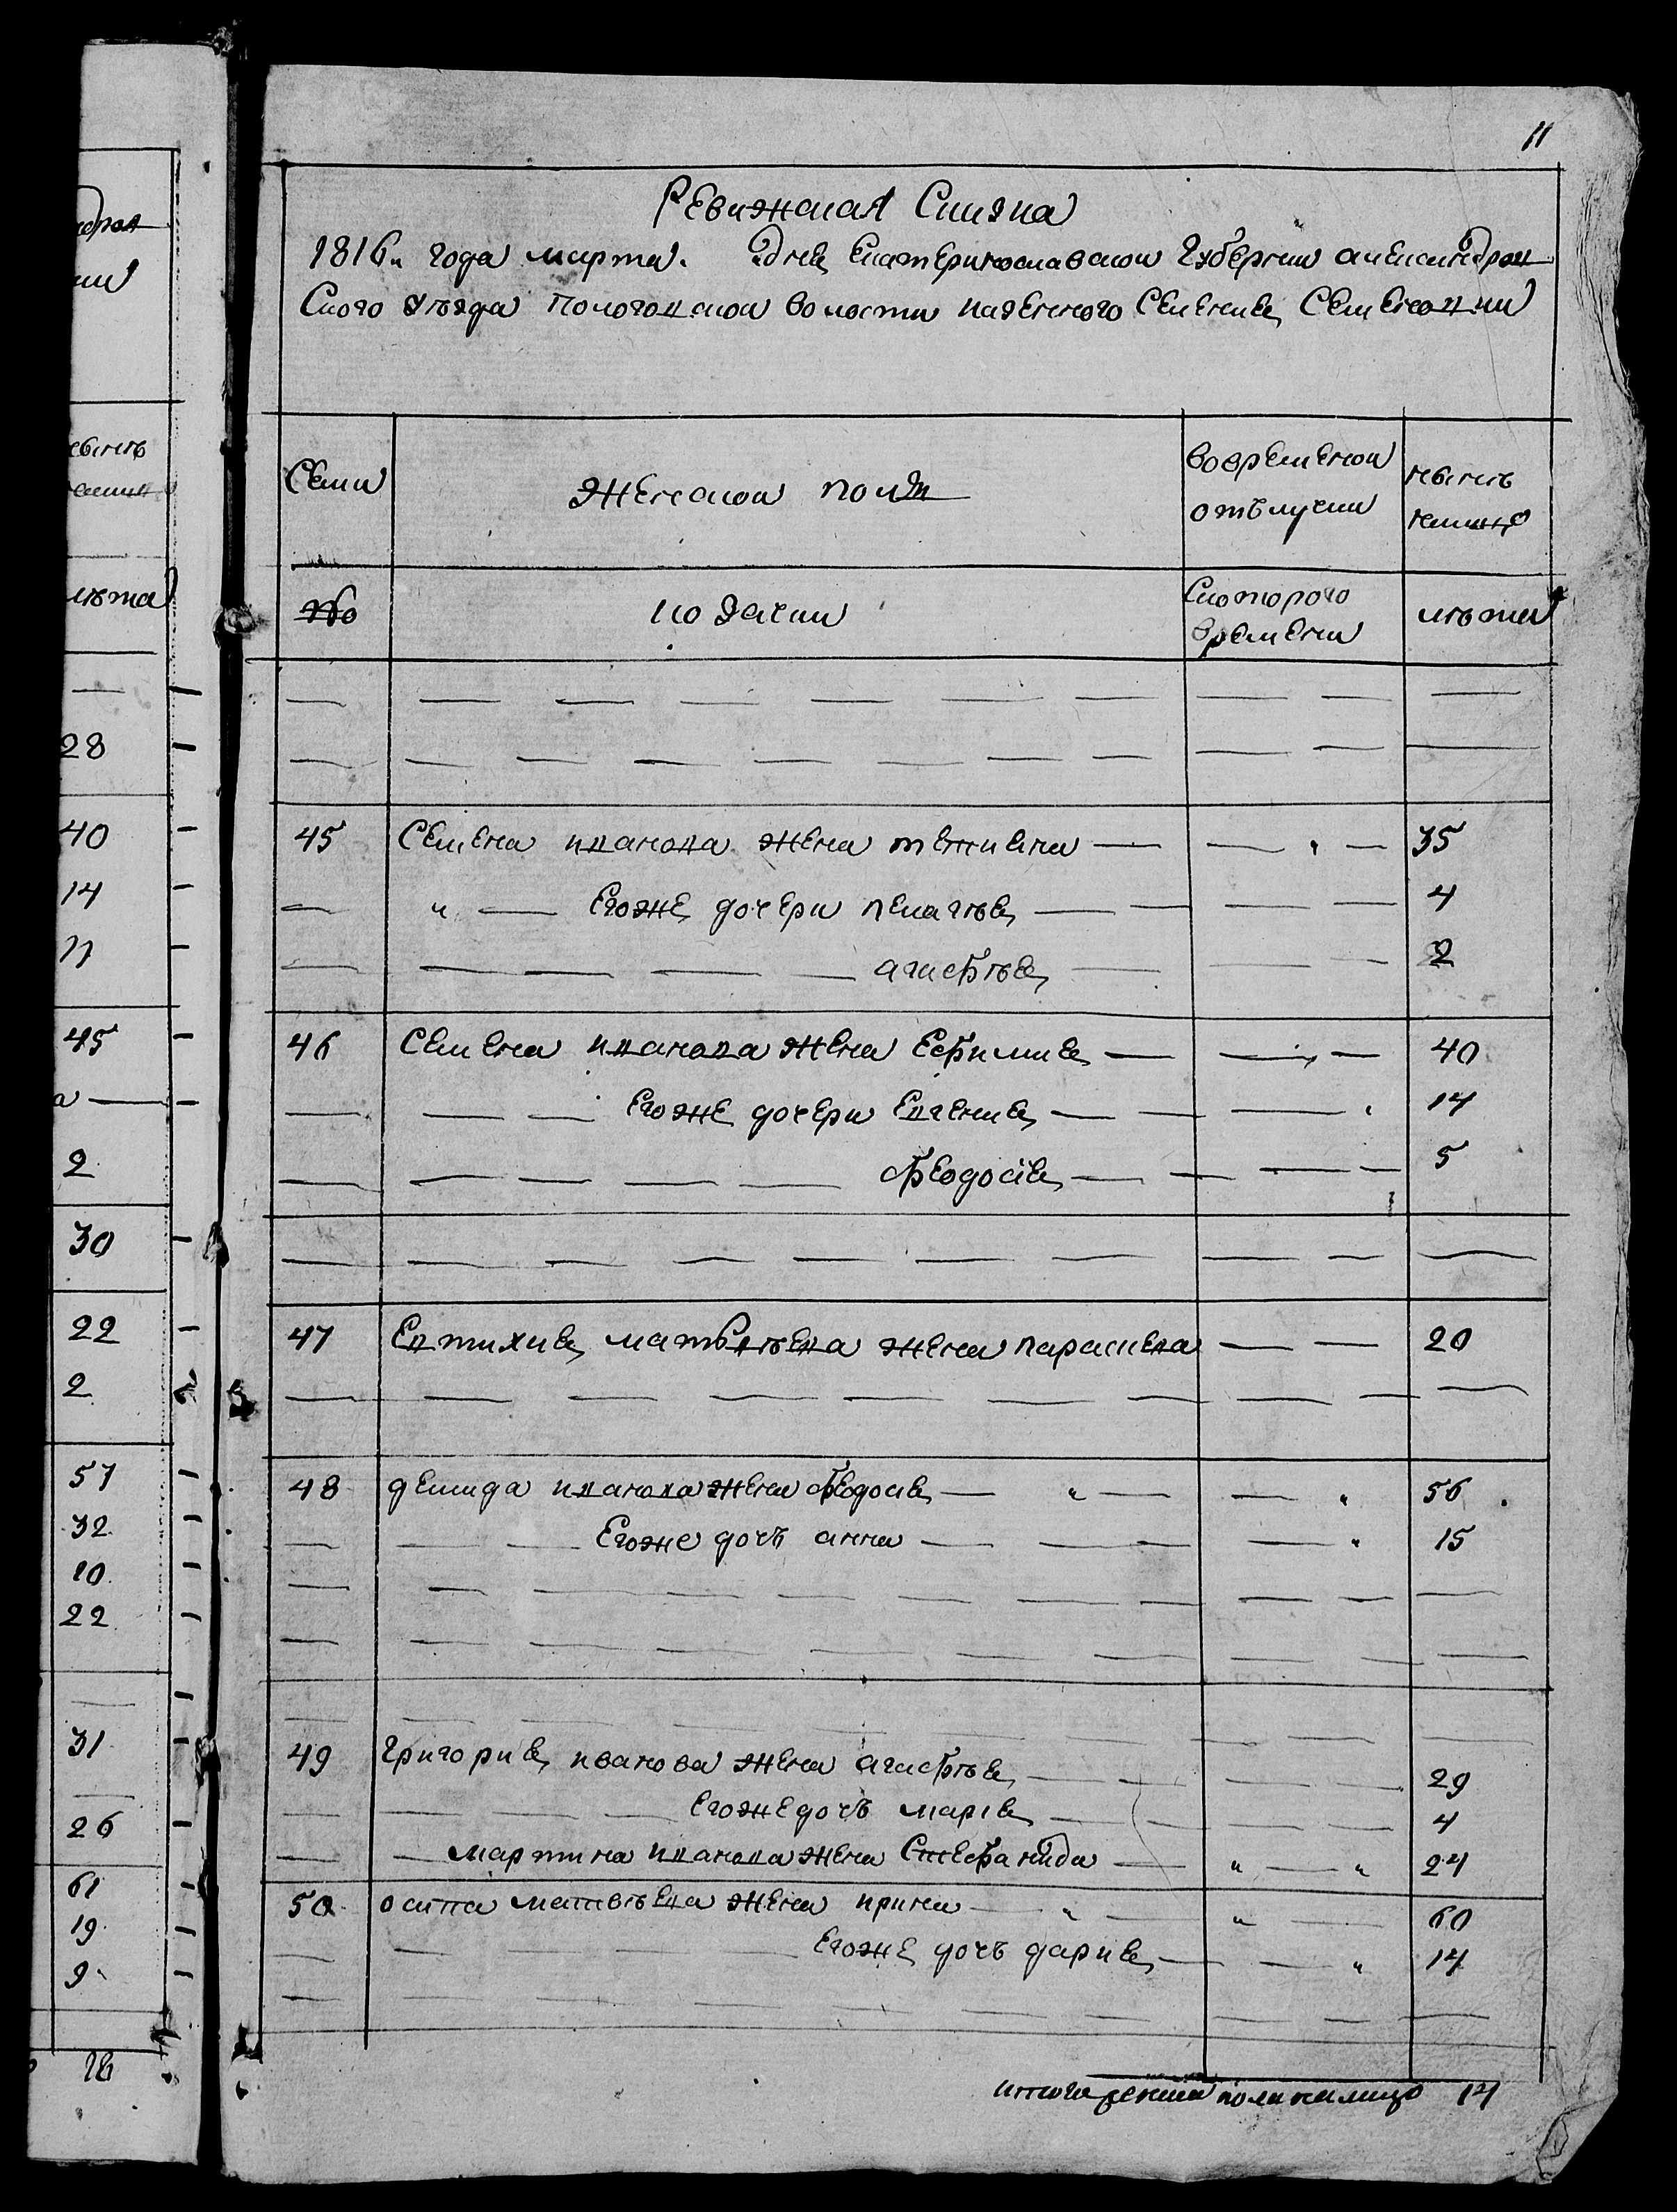 11
Ревижская Скиска
1816го года марта. Дня Екатеринославской Губернии александров
ского уезда Пологовской волости казенного Селения Семеновки
Семи
женской пол
во временной
отълучки
нынъ
налицо
№
количии
Скоторого
времени
лѣта
45 Семена иванова жена 35
" Егоже дочери пелагѣя 4
агафѣя 2
46 Семена иванова жена Ефимия 40
Егоже дочери Евгения 14
Феодосія 5
47 Евтихия матвѣева жена параскева 20
48 демида иванова жена Феодосия 56
Егоже дочъ анна 15
49 Григория иванова жена агафѣя 29
Егоже дочъ марія 4
мартина иванова жена Стефанида 24
50 осипа матвѣева жена ирина 60
Егоже дочъ дария 14
итого женска пола налицо 14
лѣта
28
40
14
11
45
2
30
22
2
57
32
10
22
31
26
61
19
9
18